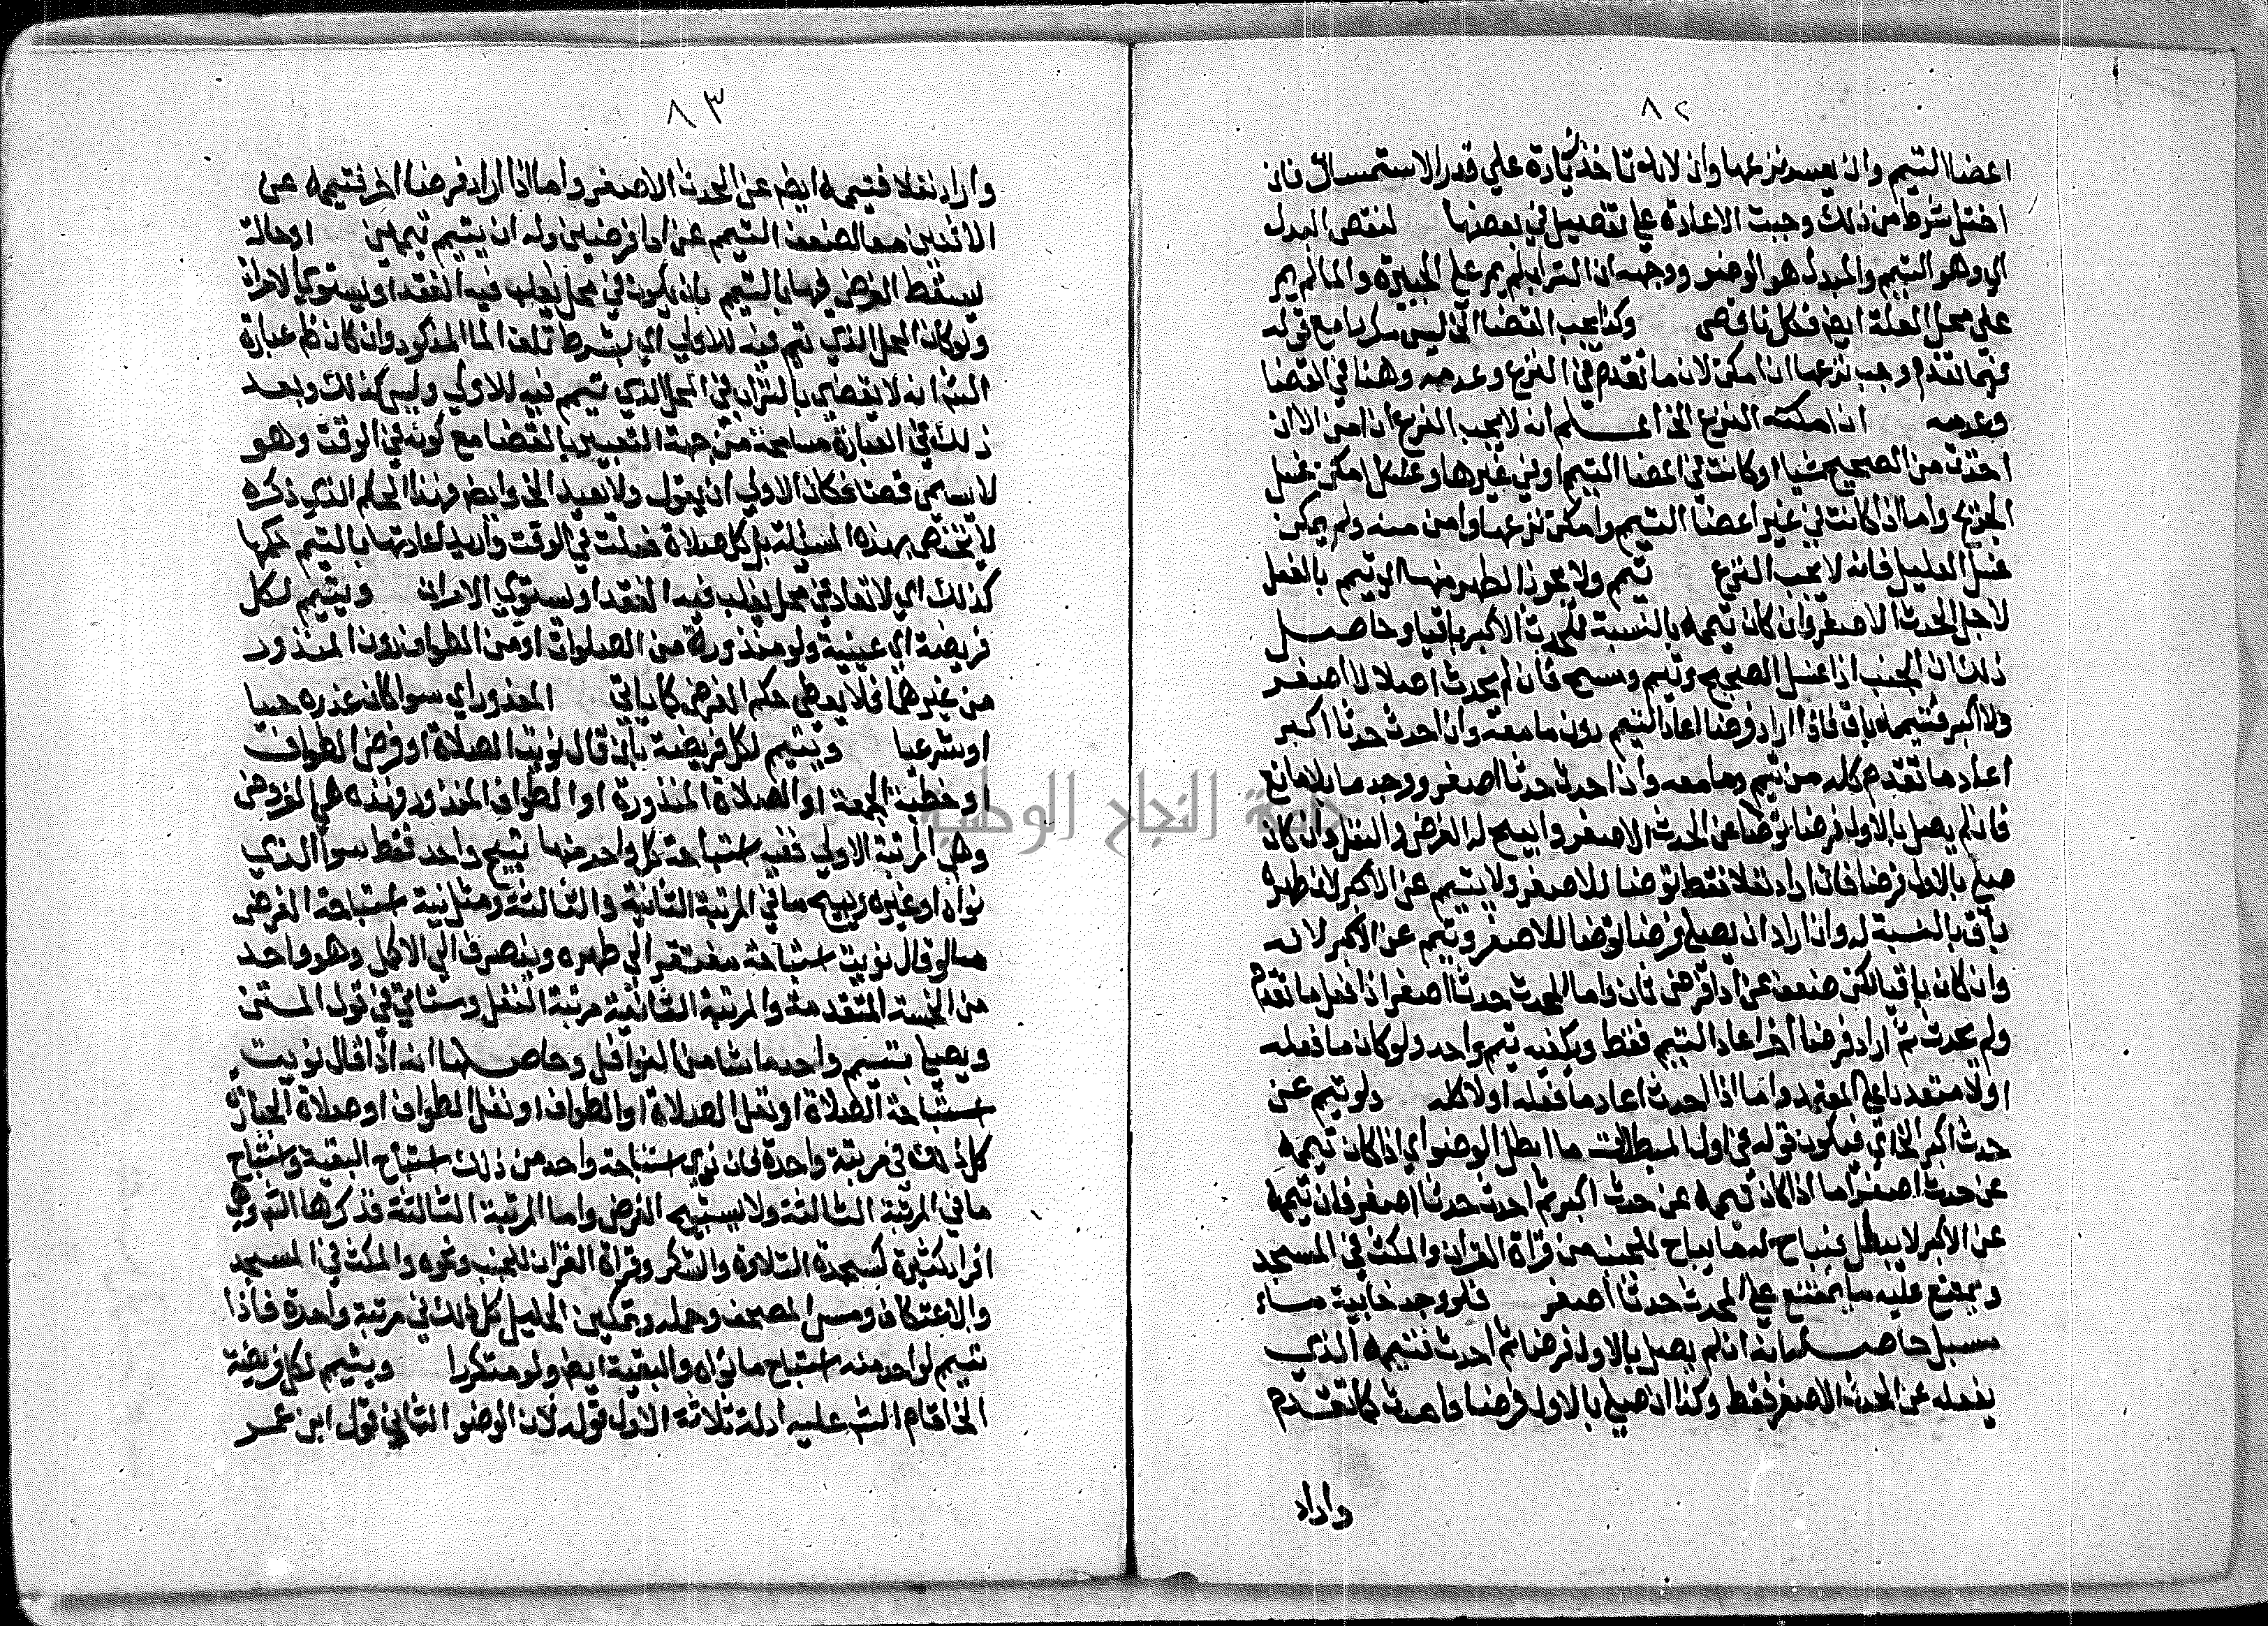 ٨٢
اعضا التيمم وان يعسر نزعها وان لا تاخذ زيادة على قدر الاستمساك فان
اختل شرط من ذلك وجبت الاعادة على تفصيل في بعضها لنقص البدل
اي وهو التيمم والمبدل هو الوضو ووجهه ان التراب لم يمر على الجبيرة والما لم يمر
على محل العلة ايض فكل ناقص وكذا يجب القضا الخ ليس مكررا مع قوله
فيما تقدم وجب نزعها ان امكن لان ما تقدم في النزع وعدمه وهنا في القضا
وعدمه ان امكنه النزع الخ اعلم انه لا يجب النزع ان امن الا ان
اخذت من الصحيح شيا او كانت في اعضا التيمم او في غيرها و امكن غسل
الجرح واما اذا كانت في غير اعضا التيمم وامكن نزعها وامن منه ولم يمكن
غسل العليل فانه لا يجب النزع تيمم ولا يجوز الطهر منها الو تيمم بالفعل
لاجل الحدث الاصغر وان كان تيممه بالنسبة للحدث الاكبر باقيا وحاصل
ذلك ان الجنب اذا غسل الصحيح وتيمم ومسح فان لم يحدث اصلا لا اصغر
ولا اكبر فتيممه باق فاذا اراد فرضا اعاد التيمم دون ما معه وان احدث حدثا اكبر
اعاد ما تقدم كله من تيمم وما معه وان احدث حدثا اصغر ووجد ما بلا مانع
فان لم يصل بالاول فرضا توضا عن الحدث الاصغر وابيح له الفرض والنفل وان كان
صلى بالاول فرضا فان اراد نفلا فقط توضا للاصغر ولا يتيمم عن الاكبر لان طهره
باق بالنسبة له وان اراد ان يصلي فرضا توضا للاصغر وتيمم عن الاكبر لانه
وان كان باقيا لكن ضعف عن ادا فرض ثان واما لم يحدث حدثا اصغر اذا فعل ما تقدم
ولم يحدث ثم اراد فرضا اخر اعاد التيمم فقط ويكفيه تيمم واحد ولو كان ما فعله
اولا متعددا على المعتمد واما اذا احدث اعاد ما فعله اولا كله ولو تيمم عن
حدث اكبر الخ اي فيكون قوله في اول المبطلات ما ابطل الوضو اي اذا كان تيممه
عن حدث اصغر اما اذا كان تيممه عن حدث اكبر ثم احدث حدثا اصغر فان تيممه
عن الاكبر لا يبطل فيباح له ما يباح للجنب من قراة القران والمكث في المسجد
ويمتنع عليه ما يمتنع على المحدث حدثا اصغر فلو وجد خابية ماء
مسبل حاصله انه ان لم يصل بالاول فرضا ثم احدث فتيممه الذي
يفعله عن الحدث الاصغر فقط وكذا ان صلى بالاول فرضا واحدث كما تقدم
واراد
٨٣
واراد نفلا فتيممه ايض عن الحدث الاصغر واما اذا اراد فرضا اخر فتيممه عن
الاثنين معا لضعف التيمم عن ادا فرضين وله ان يتيمم تيممين او حالة
يسقط الفرض فيها بالتيمم بان يكون في محل يغلب فيه الفقد او يستوي الامران
ولو كان المحل الذي تيمم فيه للاولى اي بشرط تلف الما المذكور وان كان ظ عبارة
الش انه لا يقضي بالتراب في المحل الذي تيمم فيه للاولى وليس كذلك وبعد
ذلك في العبارة مسامحة من جهة التعبير بالقضا مع كونه في الوقت وهو
لا يسمى قضا فكان الاولى ان يقول ولا يعيد الخ وايض فهذا الحكم الذي ذكره
لا يختص بهذه المسئلة بل كل صلاة فعلت في الوقت واريد اعادتها بالتيمم حكمها
كذلك اي لا تعاد في محل يغلب فيه الفقد او يستوي الامران ويتيمم لكل
فريضة اي عينية ولو منذورة من الصلوات او من الطواف دون المنذور
من غيرهما فلا يعطى حكم الفرض كما ياتي المعذور اي سوا كان عذره حسيا
او شرعيا ويتيمم لكل فريضة بان قال نويت الصلاة او فرض الطواف
او خطبة الجمعة او الصلاة المنذورة او الطواف المنذور وهذه هي الفروض
وهي المرتبة الاولى ففيه استباحة كل واحد منها يبيح واحد فقط سوا الذي
نواه او غيره ويبيح ما في المرتبة الثانية والثالثة ومثل نية استباحة الفرض
ما لو قال نويت استباحة مفتقر الى طهره وينصرف الى الاكمل وهو واحد
من الخمسة المتقدمة والمرتبة الثانية مرتبة النفل وستاتي في قول المتن
ويصلي بتيمم واحد ما شا من النوافل وحاصلها انه اذا قال نويت
استباحة الصلاة او نفل الصلاة او الطواف او نفل الطواف او صلاة الجنازة
كل ذلك في مرتبة واحدة فان نوى استباحة واحد من ذلك استباح البقية واستباح
ما في المرتبة الثالثة ولا يستبيح الفرض واما المرتبة الثالثة فذكرها الش وهي
افراد كثيرة كسجدة التلاوة والشكر وقراة القران للجنب ونحوه والمكث في المسجد
والاعتكاف ومس المصحف وحمله وتمكين الحليل كل ذلك في مرتبة واحدة فاذا
تيمم لواحد منه استباح ما نواه والبقية ايض ولو متكررا ويتيمم لكل فريضة
الخ اقام الش عليه ادلة ثلاثة الاول قوله لان الوضو الثاني قول ابن عمر